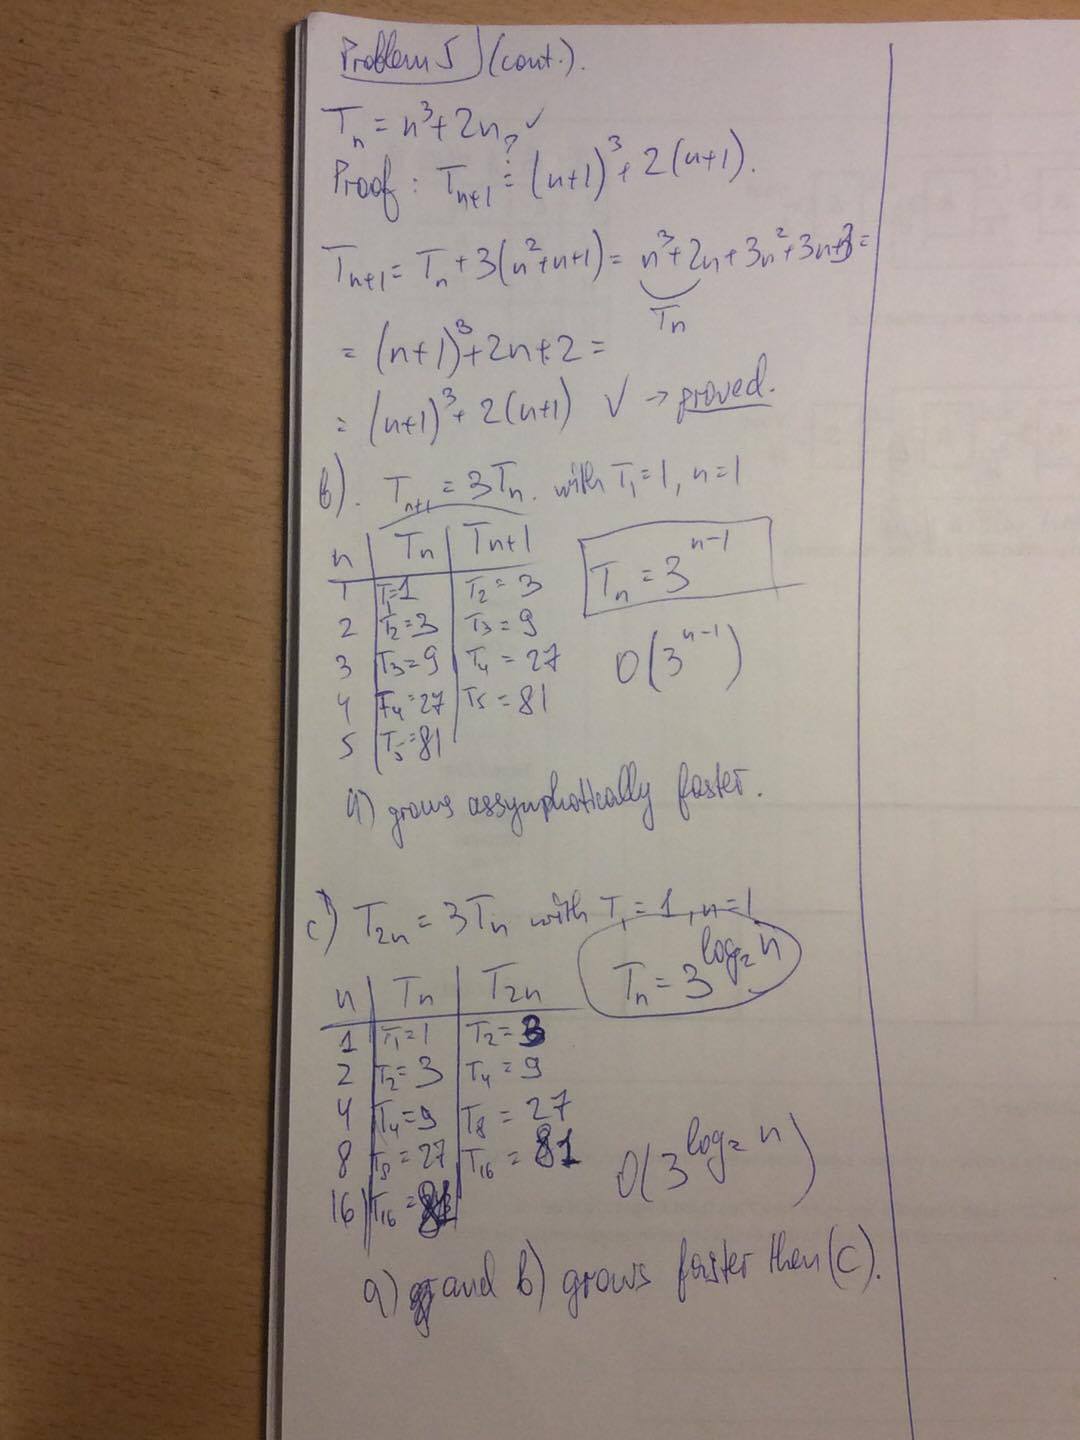 Problem 5 (cont.).
Tn = n³ + 2n ✓
Proof : Tn+1 ?= (n+1)³ + 2(n+1).
Tn+1 = Tn + 3(n²+n+1) = n³+2n+3n²+3n+3 =
Tn
= (n+1)³ + 2n + 2 =
= (n+1)³ + 2(n+1) ✓ → proved.
b). Tn+1 = 3Tn. with T1 = 1, n = 1
n | Tn | Tn+1
1 | T1=1 | T2 = 3
Tn = 3^(n-1)
2 | T2=3 | T3 = 9
3 | T3=9 | T4 = 27
O(3^(n-1))
4 | T4=27 | T5 = 81
5 | T5=81
a) grows assymphotically faster.
c) T2n = 3Tn with T1 = 1, n = 1
Tn = 3^(log₂ n)
n | Tn | T2n
1 | T1=1 | T2 = 3
2 | T2=3 | T4 = 9
4 | T4=9 | T8 = 27
8 | T8=27 | T16 = 81
O(3^(log₂ n))
16 | T16=81
a) and b) grows faster then (c).